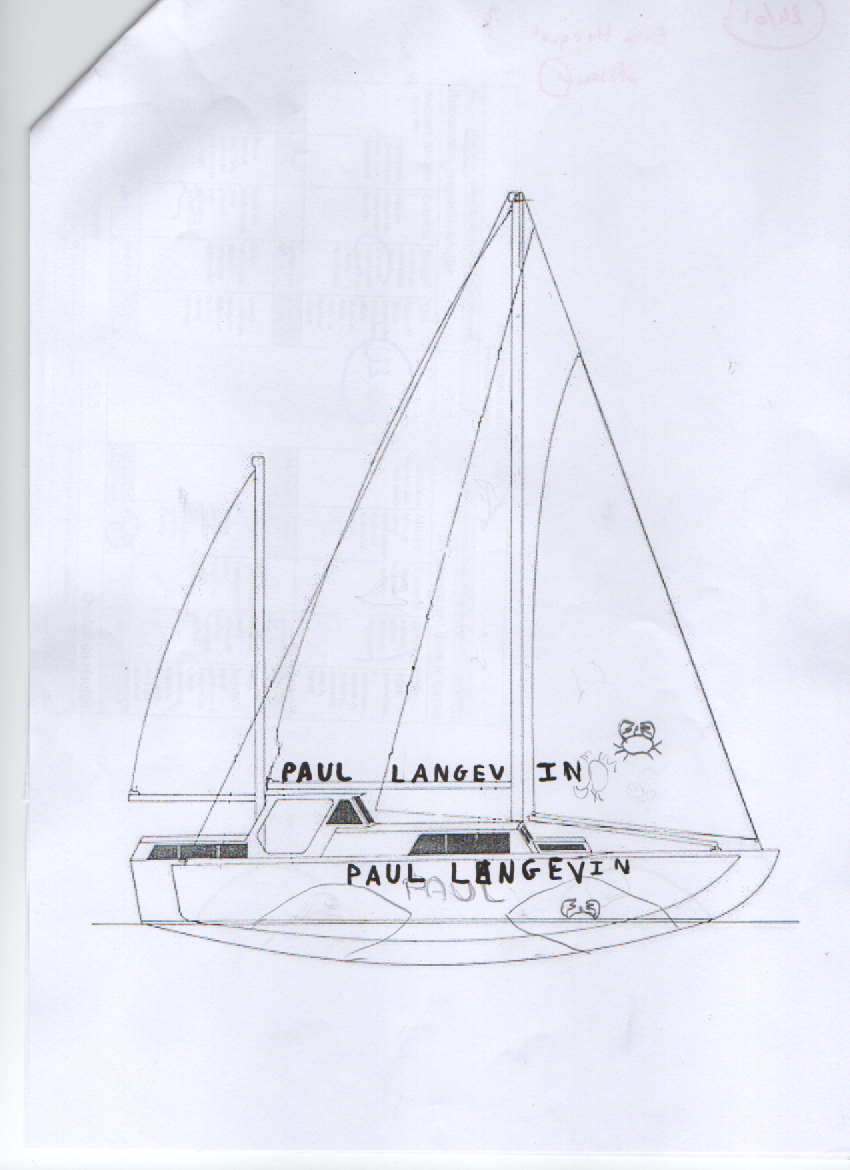 PAUL LANGEVIN
PAUL LANGEVIN
PAUL